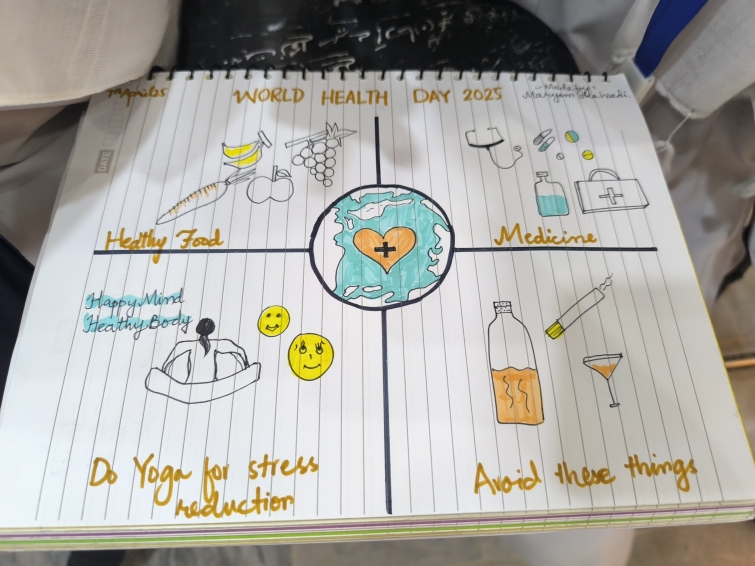 WORLD HEALTH DAY 2025
Made by:
DATE
Healthy Food
Medicine
Happy Mind
Heathy Body
Do Yoga for stress
reduction
Avoid these things